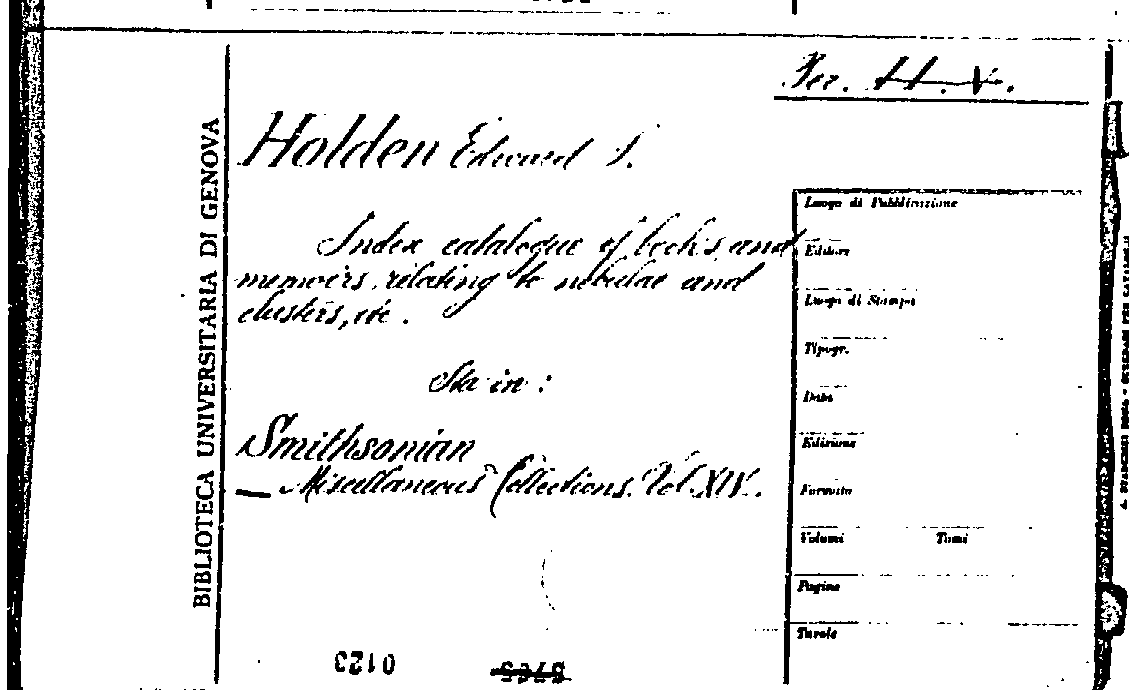 Per. H. V.
Holden Edward S.
Index catalogue of books and
memoirs, relating to nebulae and
clusters, etc.
Sta in:
Smithsonian
— Miscellaneous Collections. Vol. XIV.
BIBLIOTECA UNIVERSITARIA DI GENOVA
Luogo di Pubblicazione
Editore
Luogo di Stampa
Tipogr.
Data
Edizione
Formato
Volumi Tomi
Pagine
Tavole
0123